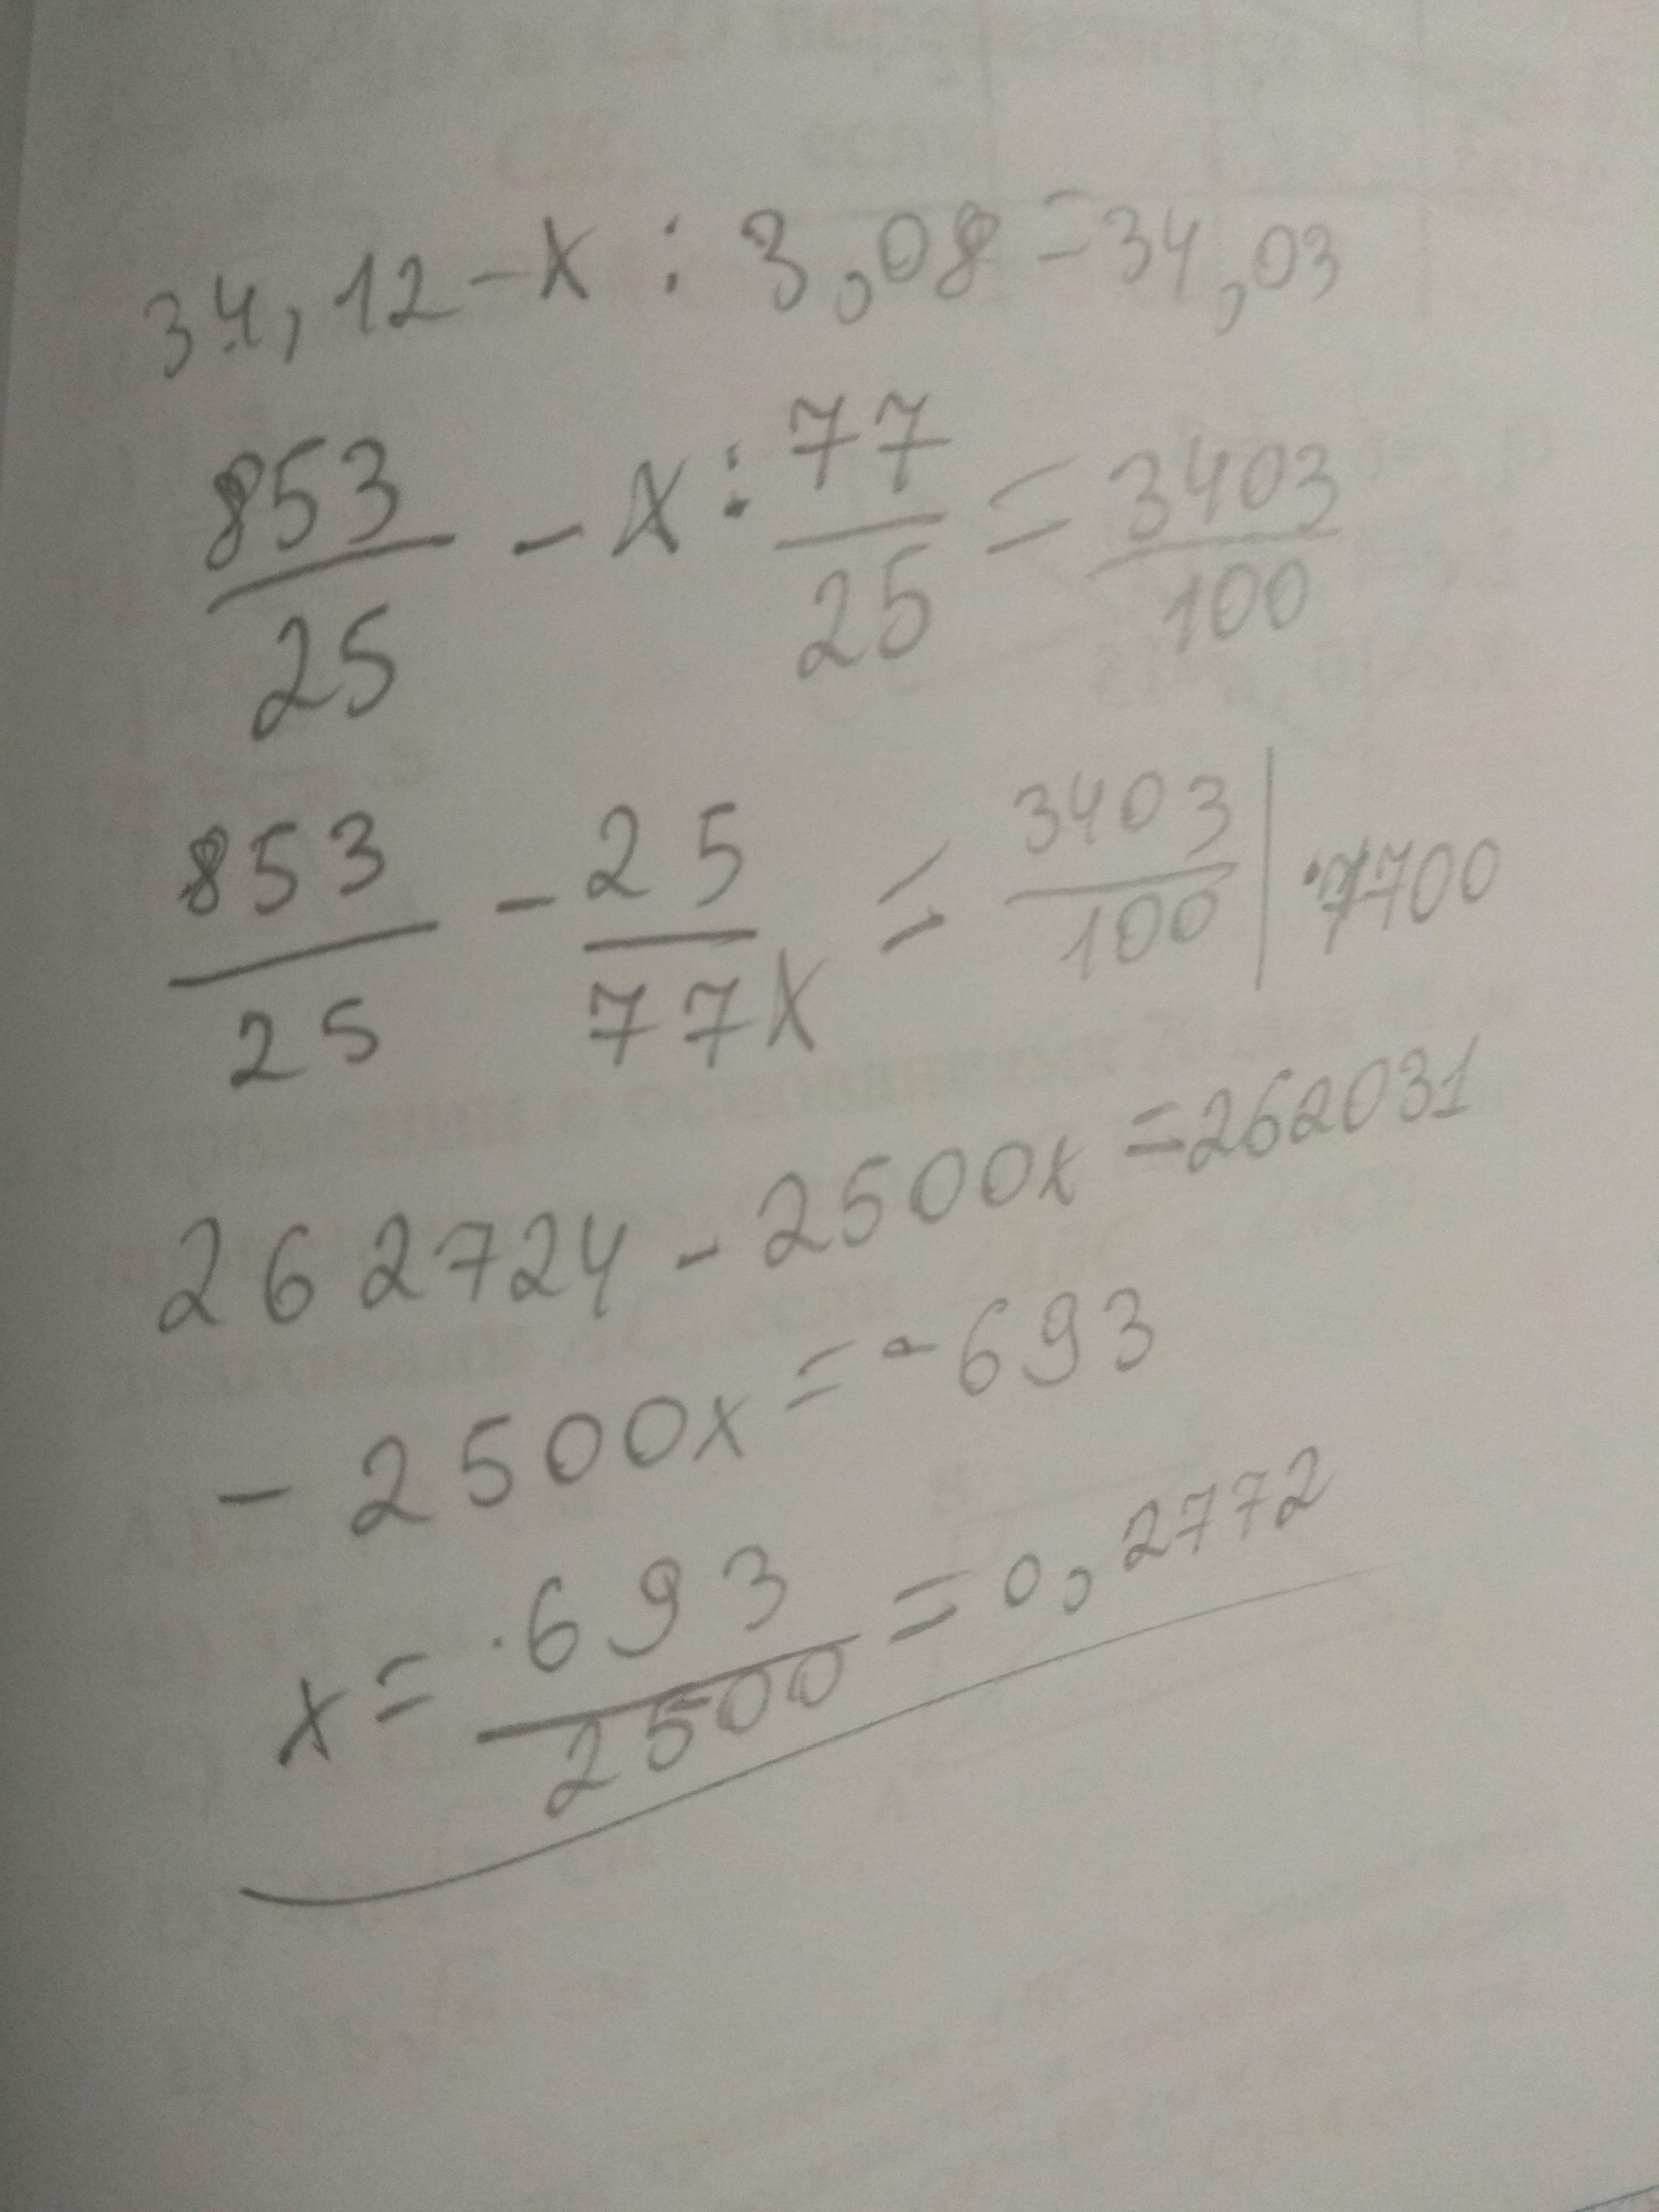 34,12-x : 3,08=34,03
853/25 - x : 77/25 = 3403/100
853/25 - 25/77 x = 3403/100 | ·7700
262724 - 2500x = 262031
- 2500x = -693
x = 693/2500 = 0,2772